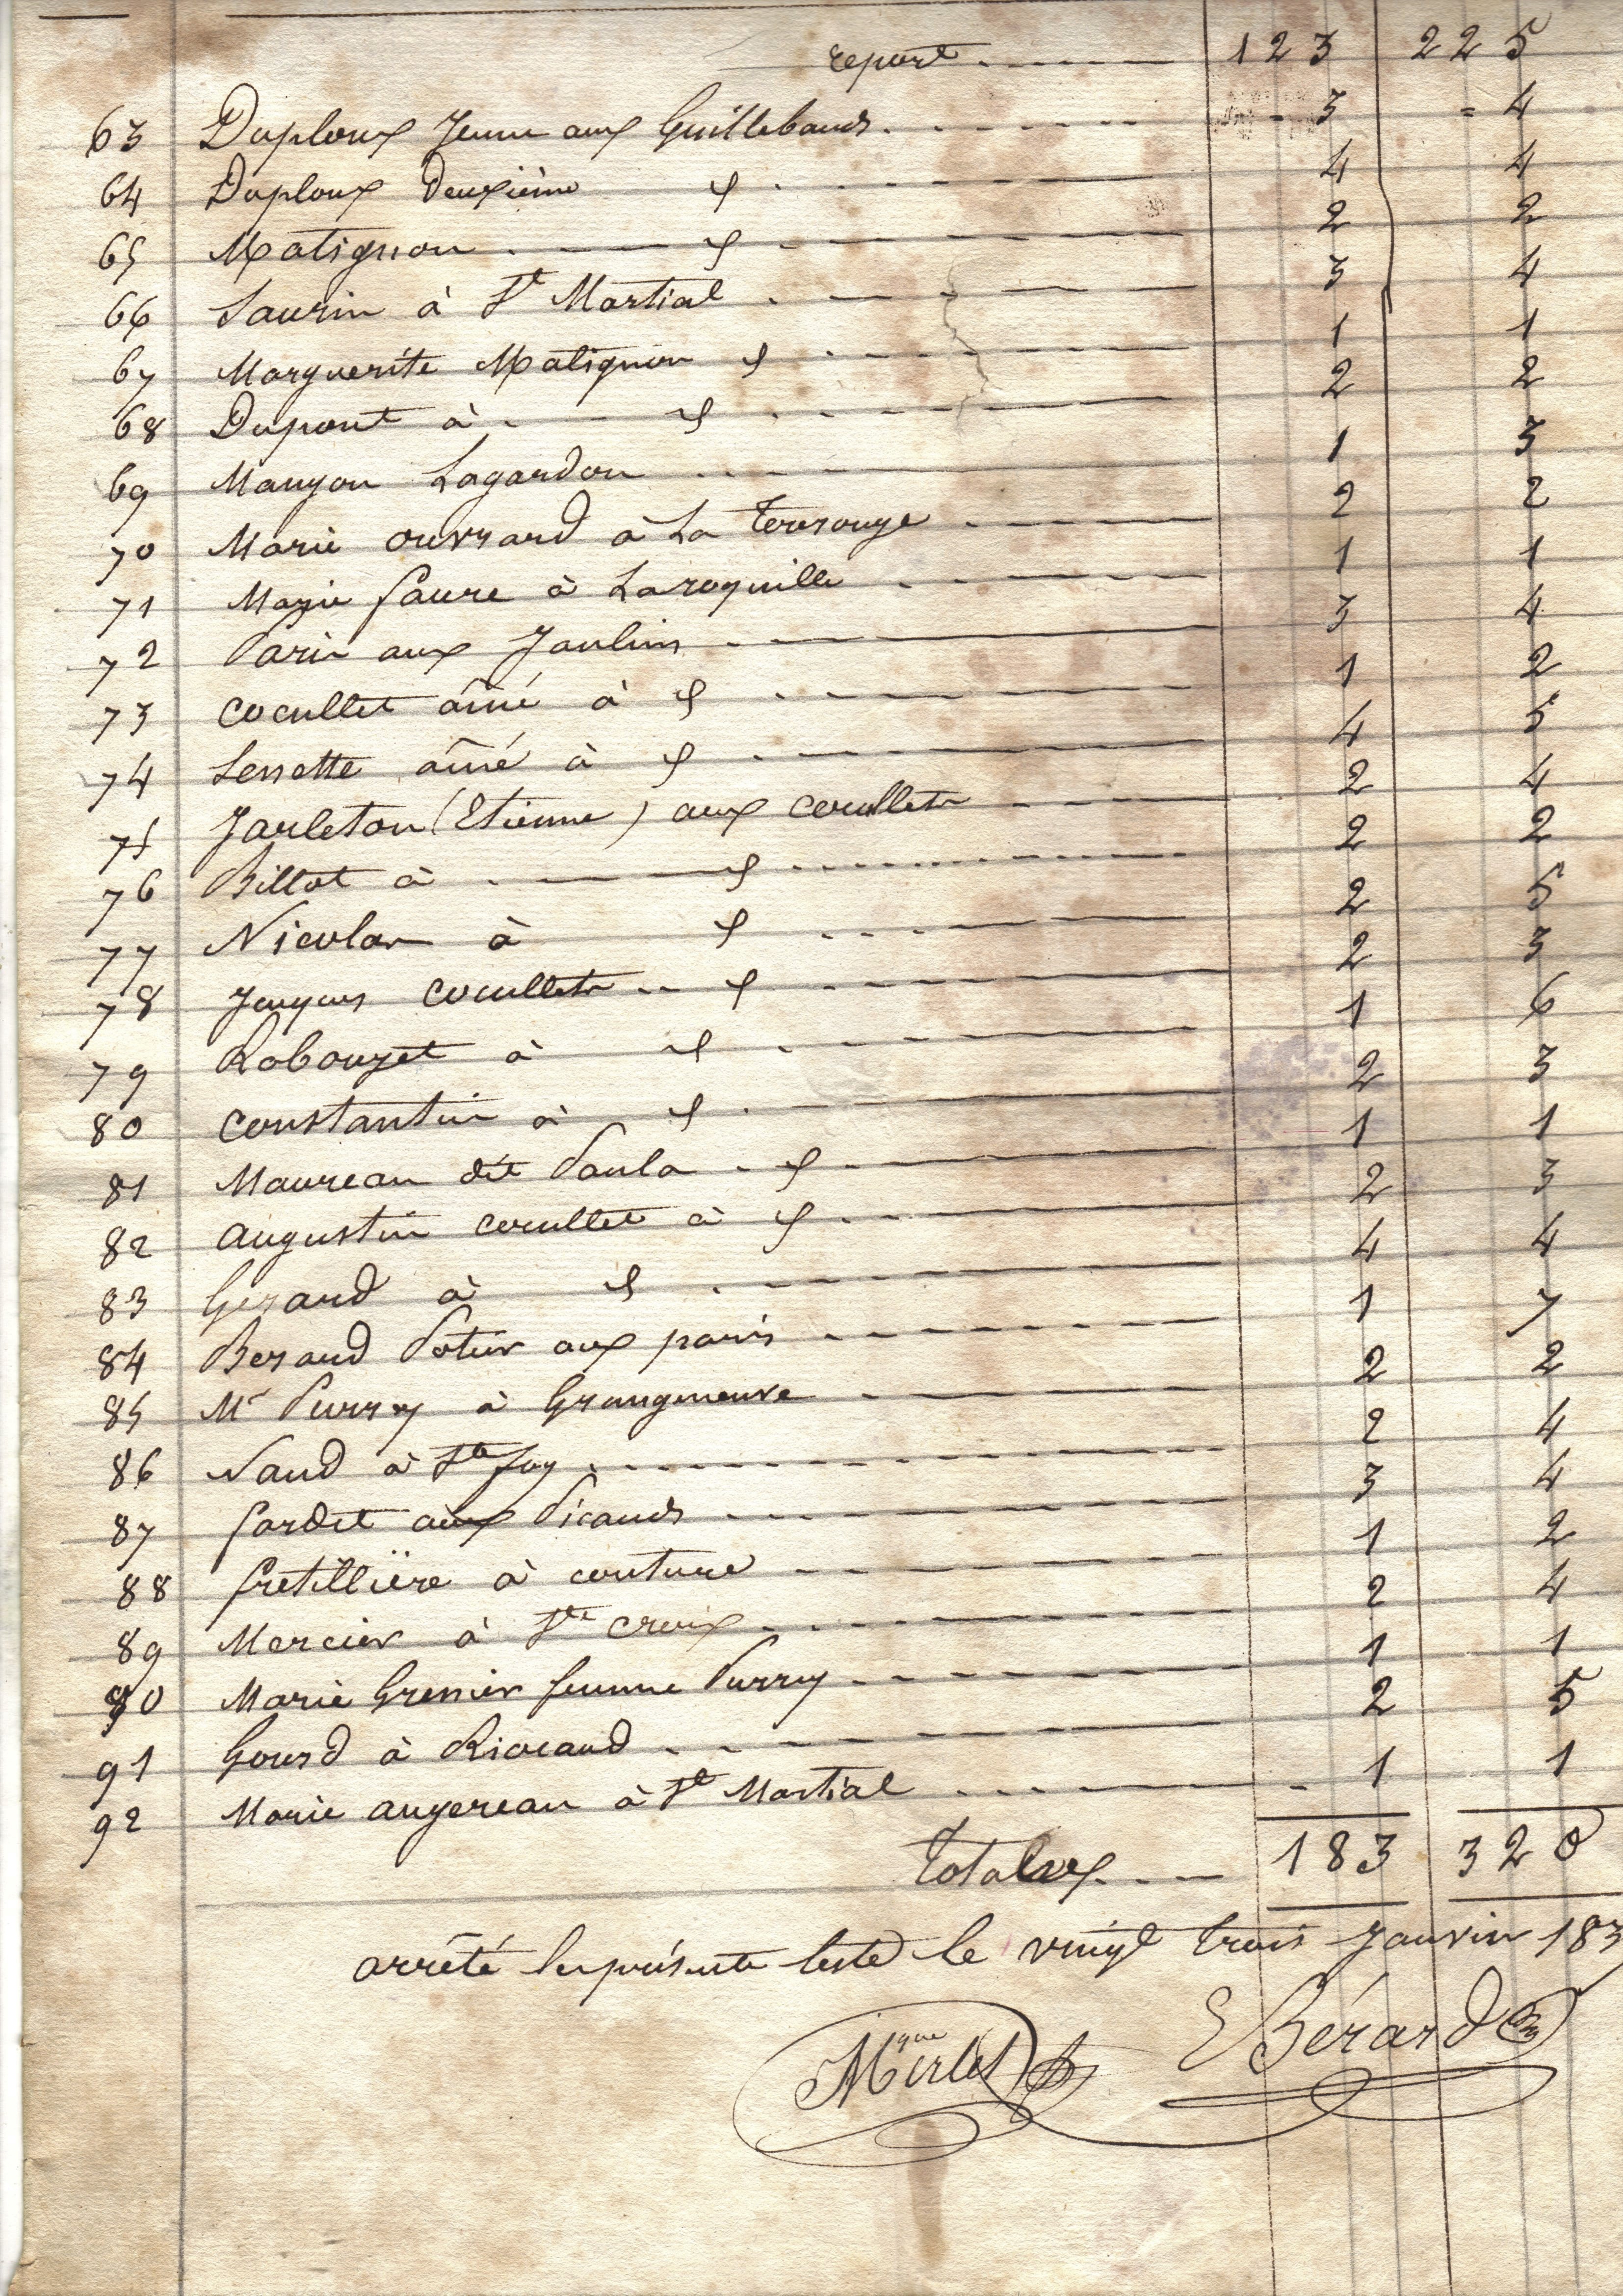 report 123 225
63 Duploux Jeune aux Guillebauds 3 4
64 Duploux Deuxième 4 4
65 Matignon 2 2
66 Saurin à St Martial 3 4
67 Marguerite Matignon 1 1
68 Dupont à 2 2
69 Manyou Lagardon 1 3
70 Marie ouvrard à La Terrouge 2 2
71 Marie faure à Laroquille 1 1
72 Paris aux Jaulins 3 4
73 cocullet aîné à 1 2
74 Lessette aîné à 4 5
75 Jarleton (Etienne) aux cocullets 2 4
76 Billot à 2 2
77 Nicolas à 2 5
78 cocullets 2 3
79 Rabouzet à 1 6
80 constantin à 2 3
81 Maureau dit Paula 1 1
82 augustin cocullet à 2 3
83 Gerard à 4 4
84 Berard Potier aux paris 1 7
85 Mr Purrey à Grangeneuve 2 2
86 Naud à Ste foy 2 4
87 fardet aux Picauds 3 4
88 fretillière à couture 1 2
89 Mercier à Ste croix 2 4
90 Marie Grenier femme Purrey 1 1
91 Gourd à Riocaud 2 5
92 Marie augereau à St Martial 1 1
Totaux 183 320
arrêté la présente liste le vingt trois Janvier 183
Mique Merlet EBérard